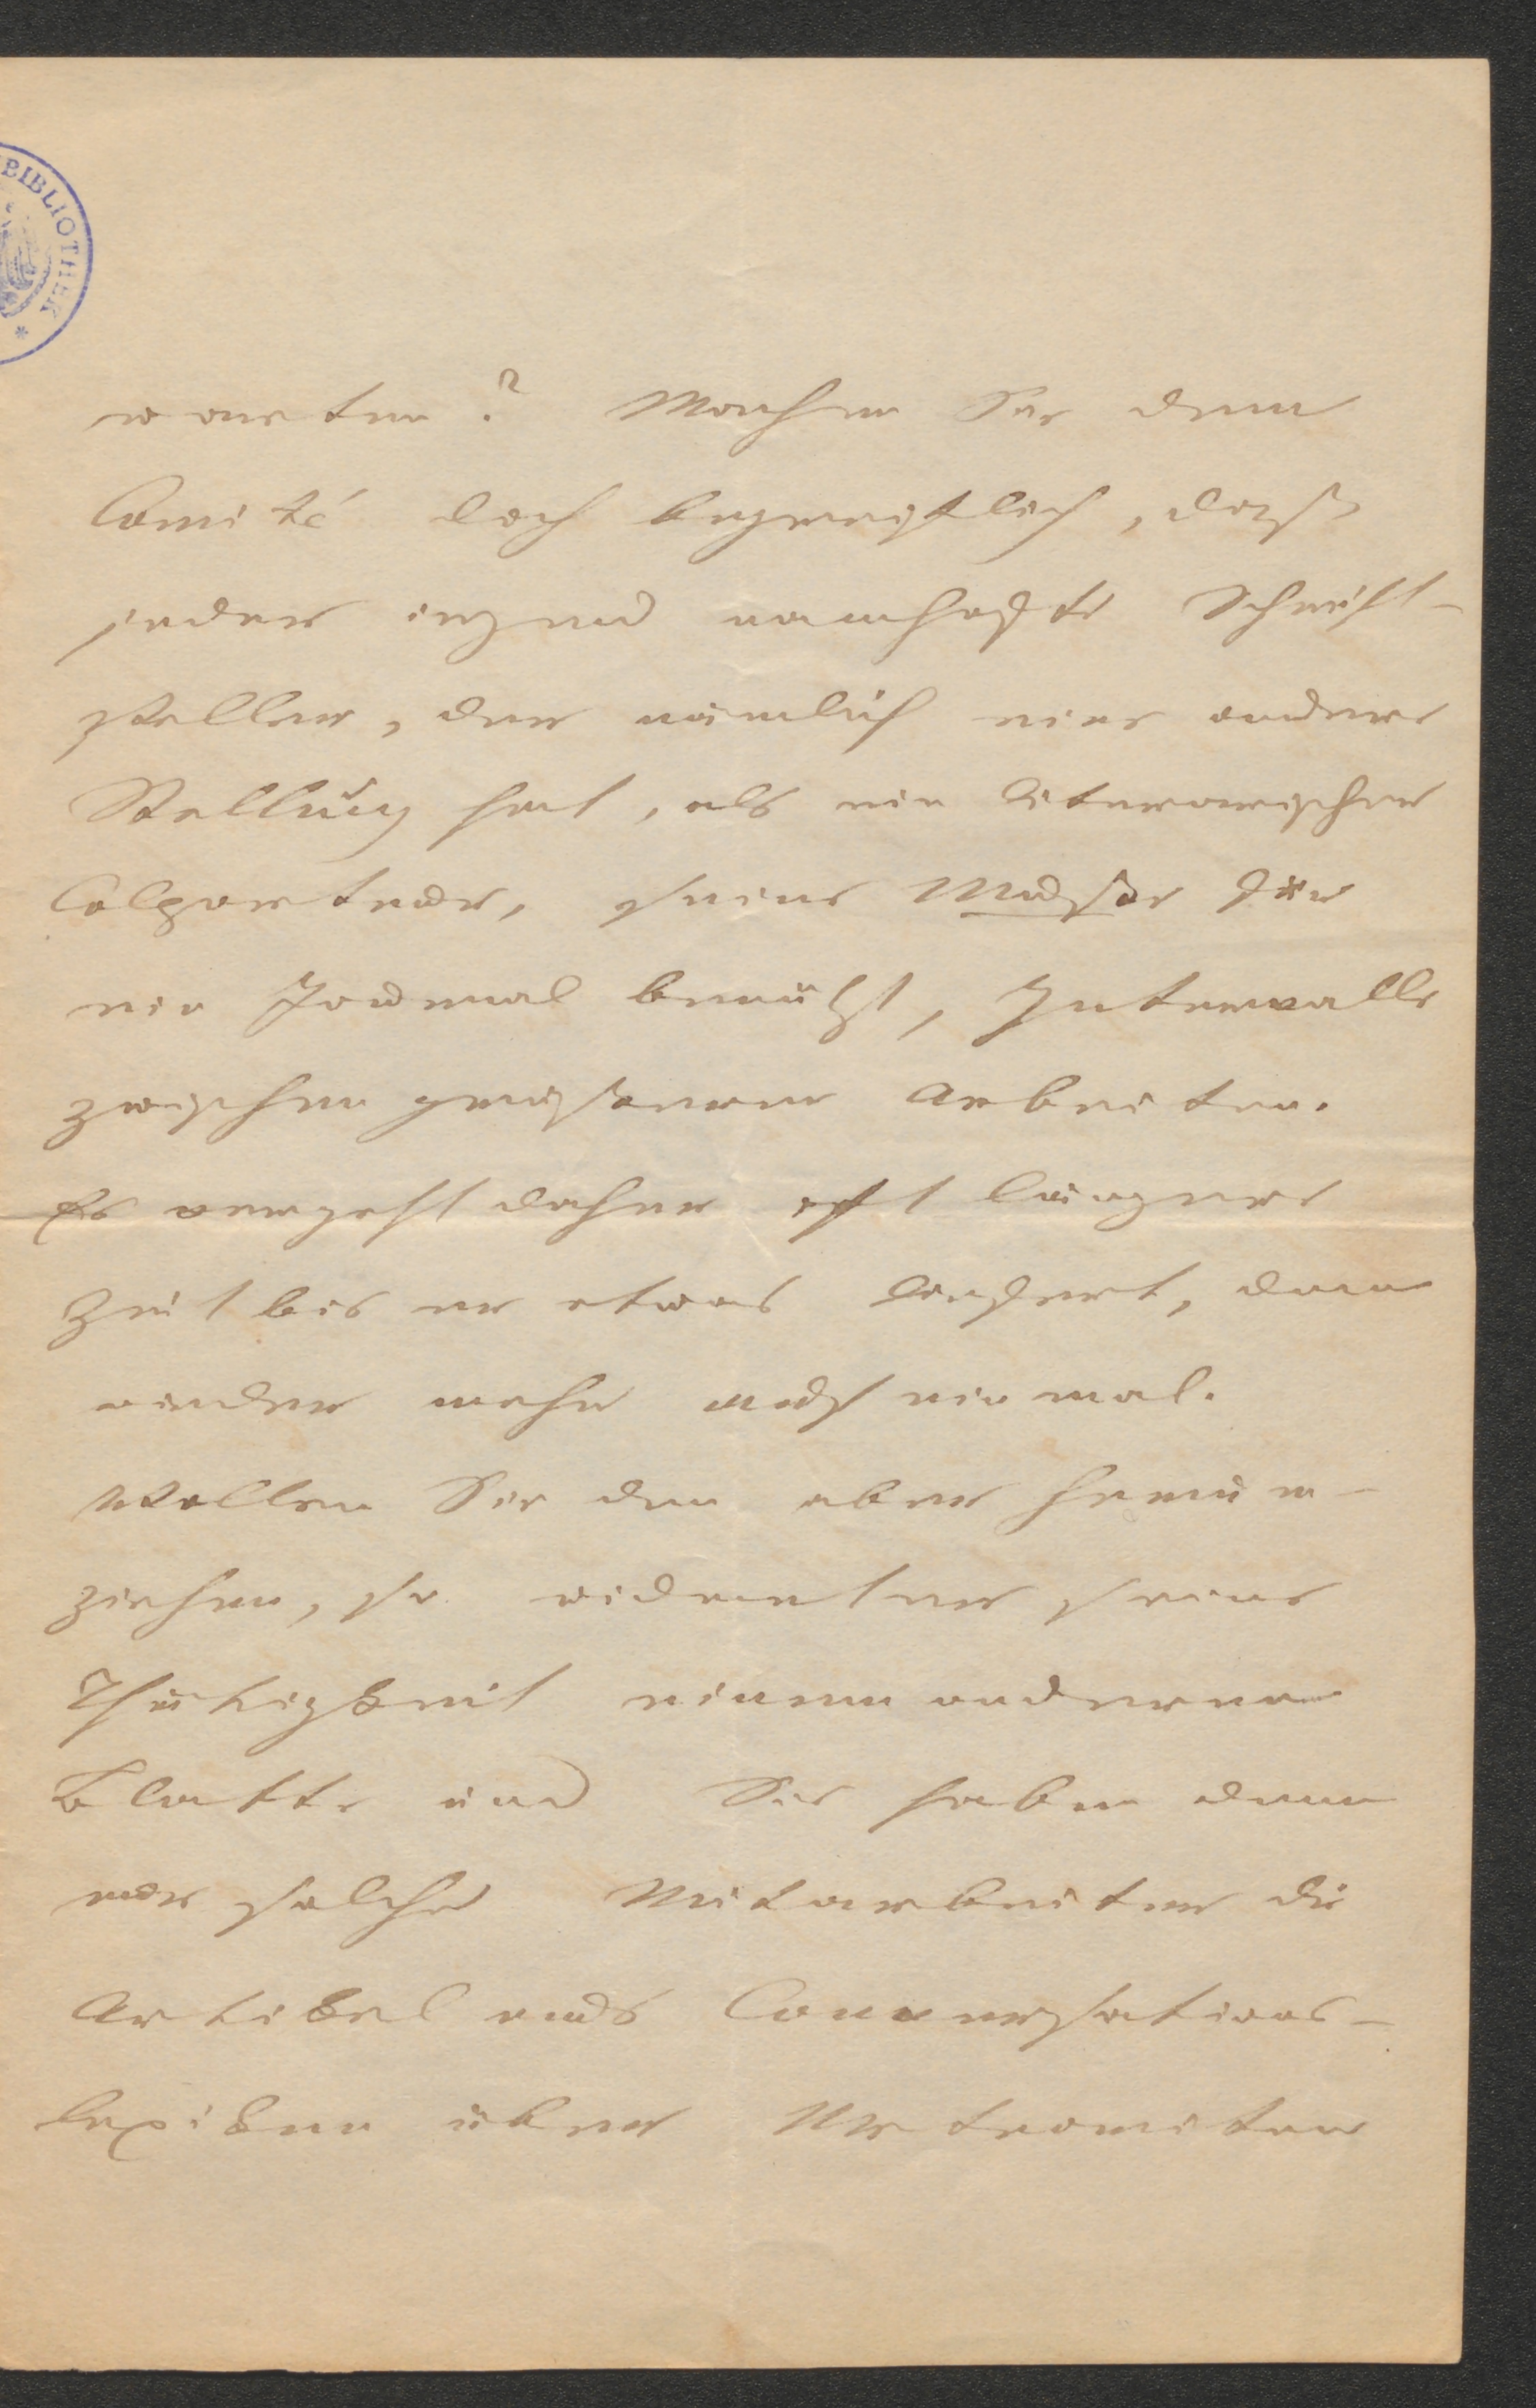 BIBLIOTHEK *
warten? Machen Sie dem
Comité doch begreiflich, dass
jeder irgend namhafte Schrift-
steller, der nämlich eine andere
Stellung hat, als ein literarischer
Colporteur, seine Muße für
ein Journal benützt, Intervalle
zwischen größeren Arbeiten.
Es vergeht daher oft längere
Zeit bis er etwas liefert, dann
wieder mehr auf einmal.
Wollen Sie den aber herum-
ziehen, so widmet er seine
Thätigkeit einem anderen
Blatte und Sie haben dann
nur solche Mitarbeiter die
Artikel aus Conversations-
lexiken über